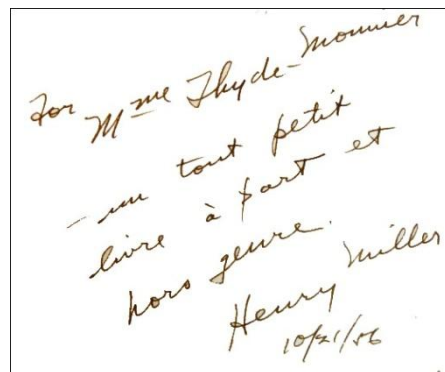 For Mme Thyde-Monnier
– un tout petit
livre à part et
hors genre.
Henry Miller
10/21/56